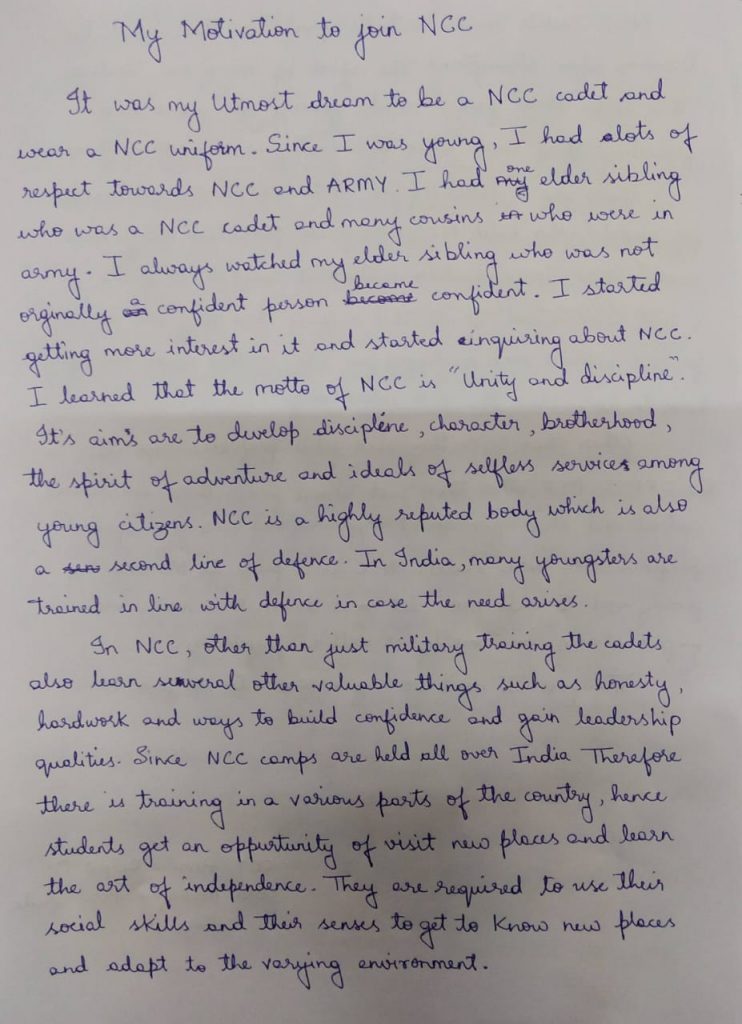 My Motivation to join NCC
It was my Utmost dream to be a NCC cadet and
wear a NCC uniform. Since I was young, I had alots of
respect towards NCC and ARMY. I had one elder sibling
who was a NCC cadet and many cousins who were in
army. I always watched my elder sibling who was not
orginally a confident person became confident. I started
getting more interest in it and started einquiring about NCC.
I learned that the motto of NCC is "Unity and discipline".
It's aim's are to develop discipline, character, brotherhood,
the spirit of adventure and ideals of selfless services among
young citizens. NCC is a highly reputed body which is also
a second line of defence. In India, many youngsters are
trained in line with defence in case the need arises.
In NCC, other than just military training the cadets
also learn several other valuable things such as honesty,
hardwork and ways to build confidence and gain leadership
qualities. Since NCC camps are held all over India Therefore
there is training in a various parts of the country, hence
students get an oppurtunity of visit new places and learn
the art of independence. They are required to use their
social skills and their senses to get to Know new places
and adapt to the varying environment.